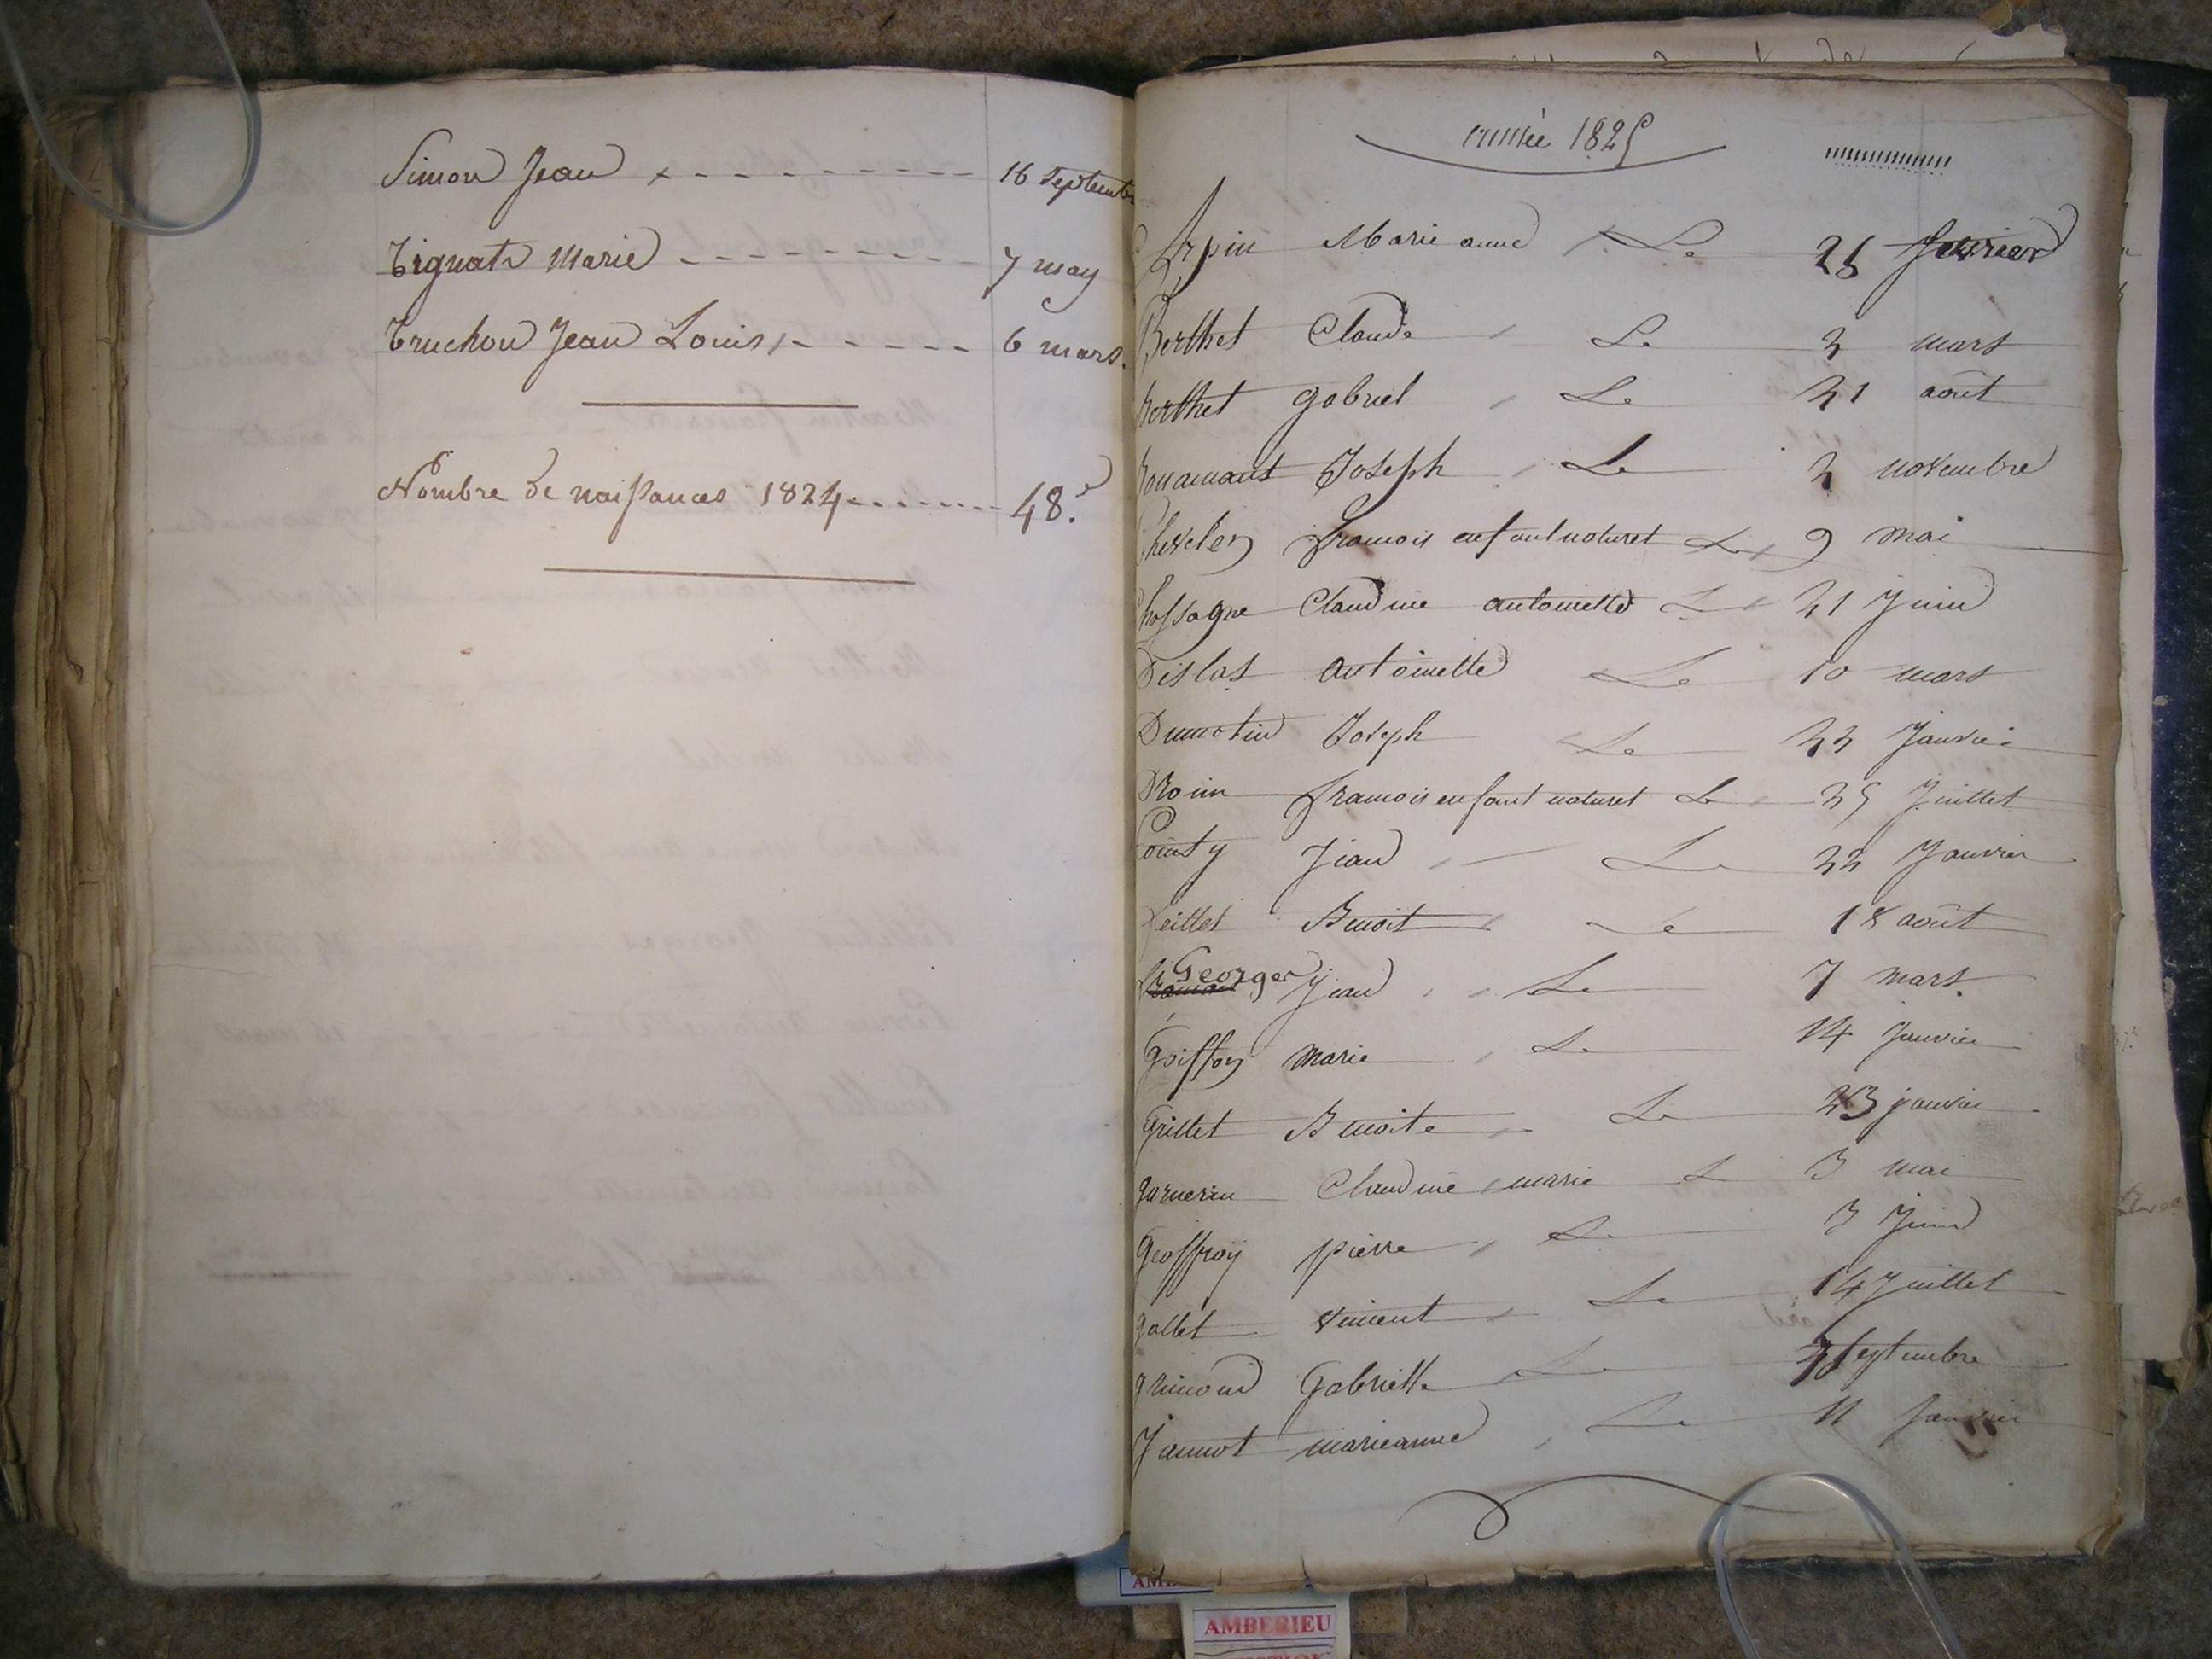 Simon Jean 16 septembre
Tignat Marie 7 may
Truchon Jean Louis 6 mars.
Nombre de naissances 1824 48.
année 1825
Arpin Marie anne Le 28 fevrier
Berthet Claude Le 2 mars
Berthet gabriel Le 21 août
Joseph Le 2 novembre
françois enfant naturel Le 9 mai
Chossagne Claudine antoinette Le 21 Juin
Deslas antoinette Le 10 mars
Dumolin Joseph Le 22 Janvier
françois enfant naturel Le 25 Juillet
Jean Le 22 Janvier
Benoit Le 18 août
George Jean Le 7 mars
Goiffon marie Le 14 Janvier
Grillet Benoite Le 23 janvier
garnerin Claudine marie Le 3 mai
Geoffroÿ pierre Le 3 Juin
gallet vincent Le 14 Juillet
grimond Gabrielle Le septembre
Jannot marieanne Le 11 Janvier
AMBERIEU